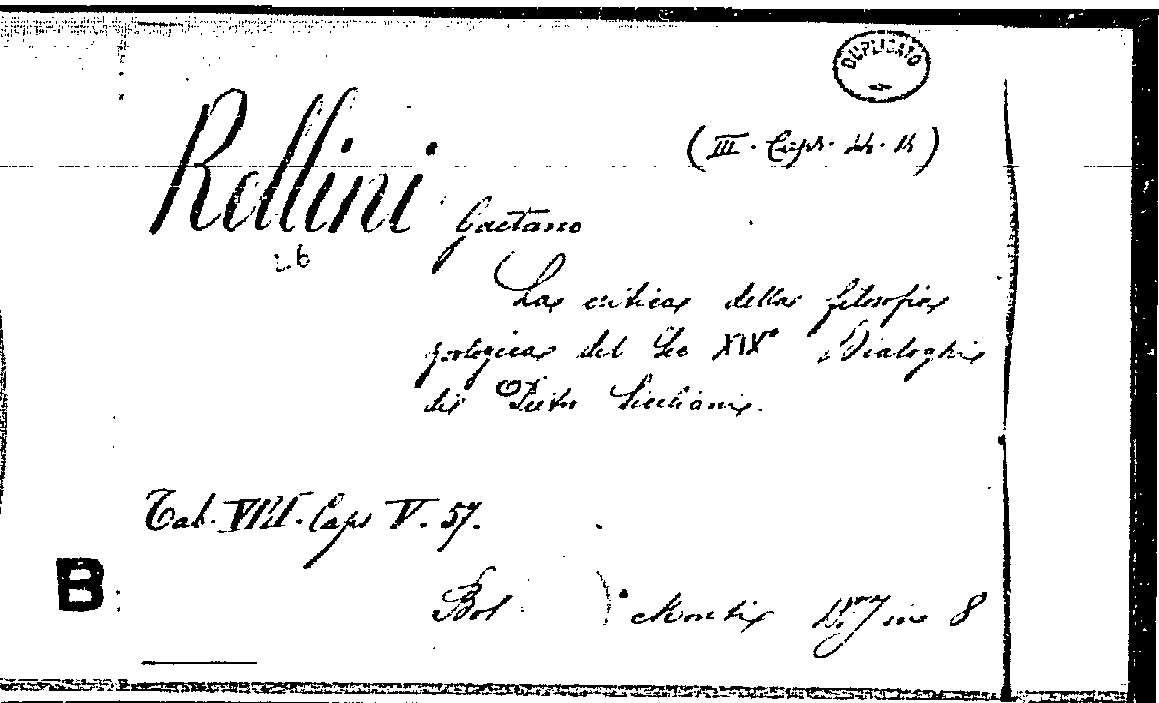 DUPLICATO
Rellini Gaetano
(III. Caps.
26
La critica della filosofia
zoologica del Sec XIX° Dialoghi
di Pietro Siciliani.
Tab. VIII. Caps V. 57.
B
Bol. Monti in 8